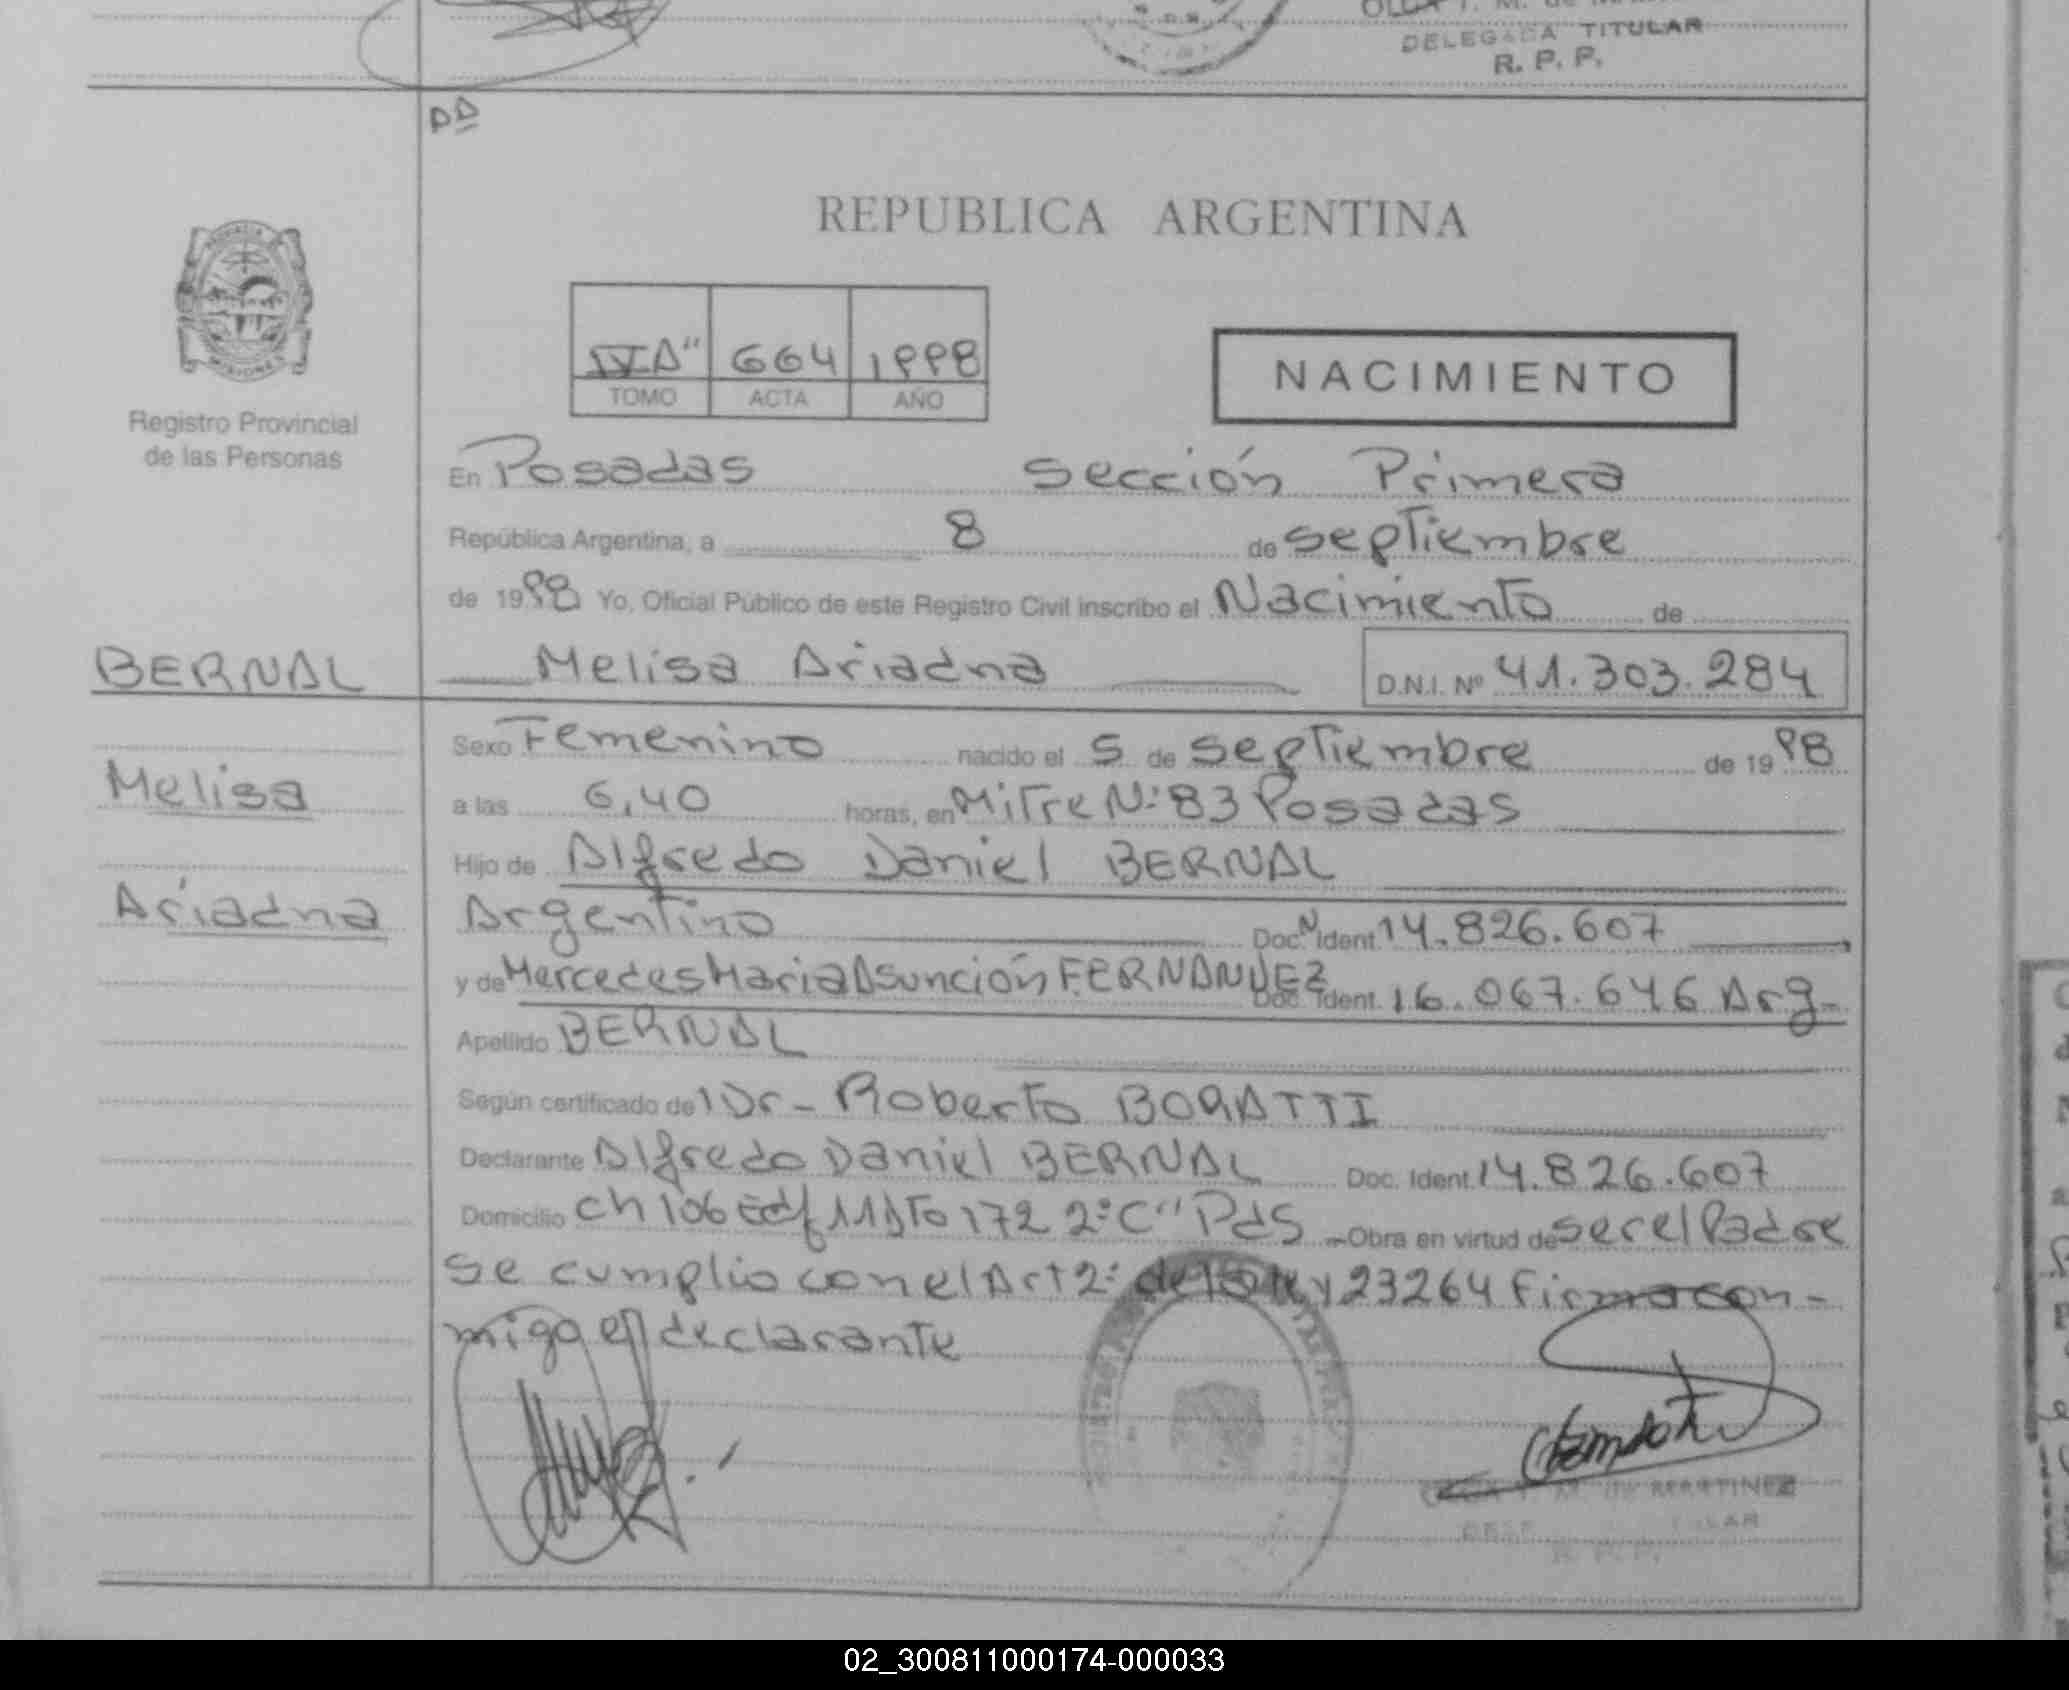 DELEGADA TITULAR
R. P. P.
REPUBLICA ARGENTINA
664 1998
TOMO ACTA AÑO
NACIMIENTO
Registro Provincial
de las Personas
En Posadas sección Primera
República Argentina, a 8 de septiembre
de 1998 Yo, Oficial Público de este Registro Civil inscribo el Nacimiento de
BERNAL Melisa Ariadna D.N.I. Nº 41.303.284
Sexo Femenino nacido el 5 de septiembre de 1998
Melisa
a las 6,40 horas, en Mitre Nº 83 Posadas
Hijo de Alfredo Daniel BERNAL
Ariadna
Argentino Doc. Ident. Nº 14.826.607
y de Mercedes Maria Asunción FERNANDEZ Doc. Ident. 16.067.646 Arg-
Apellido BERNAL
Según certificado del Dr- Roberto BORATTI
Declarante Alfredo Daniel BERNAL Doc. Ident. 14.826.607
Domicilio ch 106 Edf 11 Dto 172 2º C" Pds -Obra en virtud de ser el Padre
se cumplio con el Art 2º de la ley 23264 firma con-
migo el declarante
MARTINEZ
02_300811000174-000033